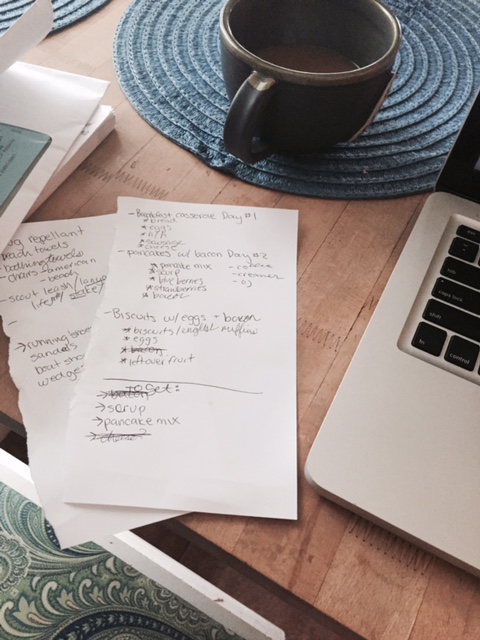 ug repellant
beach towels
- bathing towels
- chairs - american
- beach
- scout leash/
life
-
→ running
sandals
boat
wedge
- Breakfast casserole Day #1
* bread
* eggs
* sausage
- pancakes w/ bacon Day #2
* pancake mix - coffee
* syrup - creamer
* blueberries - OJ
* strawberries
* bacon
- Biscuits w/ eggs + bacon
* biscuits/english muffins
* eggs
* bacon
* leftover fruit
To Get:
→ bacon
→ syrup
→ pancake mix
→ cheese
caps lock
shift
fn
control